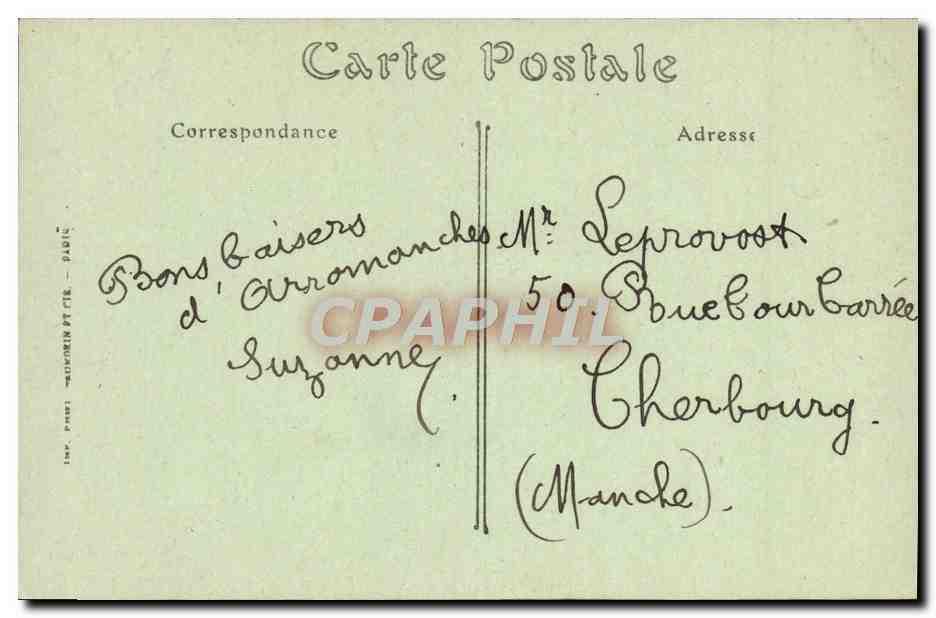 Carte Postale
Correspondance
Adresse
Bons baisers
d'Arromanches
Suzanne.
Mr. Leprovost
50. Rue Tour Carrée
Cherbourg.
(Manche).
CPAPHIL